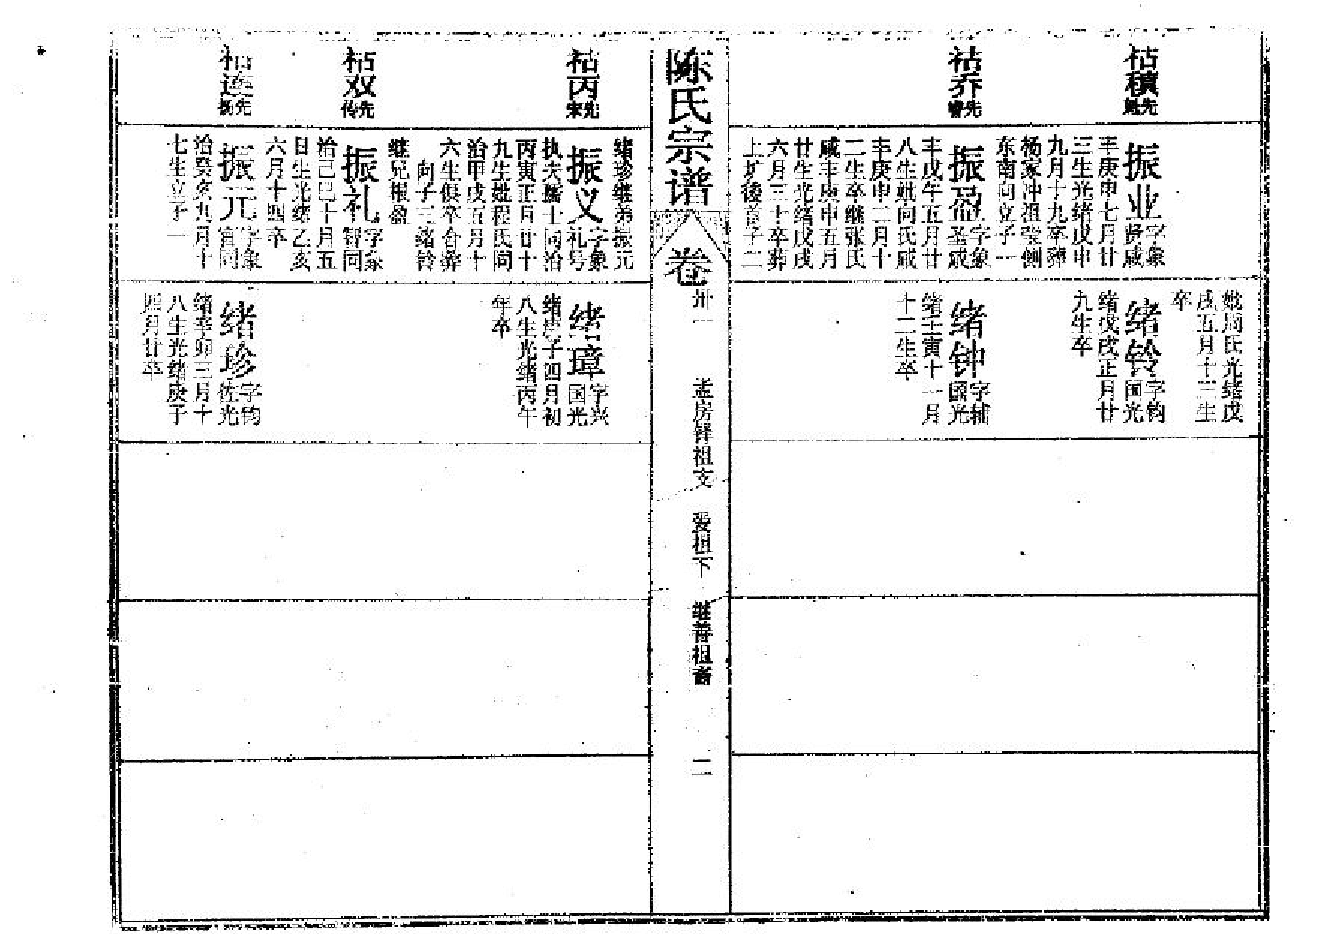 祜積先
振业字象
贤咸
丰庚申七月廿
三生光绪戊申
九月十九卒葬
杨家冲祖莹侧
东南向立子一
妣周氏光绪戊
戌五月十三生
卒
绪铃字钧
国光
绪戊戌正月廿
九生卒
祜乔先
睿
振盈字象
圣咸
丰戊午五月廿
八生妣向氏咸
丰庚申二月十
二生卒继张氏
咸丰庚申五月
廿生光绪戊戌
六月三十卒葬
上圹後首子二
绪钟字辅
國光
绪壬寅十一月
十二生卒
陈氏宗谱
卷
卅一
孟房铎祖支
爱祖下
继善祖裔
二
绪珍继弟振元
祜丙先
宋
振义字象
礼号
执夫爵士同治
丙寅正月廿十
九生妣程氏同
治甲戌五月十
六生俱卒合葬
向子三绪铃
继兄振盈
绪璋字兴
国光
绪庚子四月初
八生光绪丙午
年卒
祜双先
传
振礼字象
智同
治己巳十月五
日生光绪乙亥
六月十四卒
祜连先
扬
振元字象
官同
治癸亥九月十
七生立子一
绪珍字钧
佐光
绪辛卯三月十
八生光绪庚子
四月廿卒